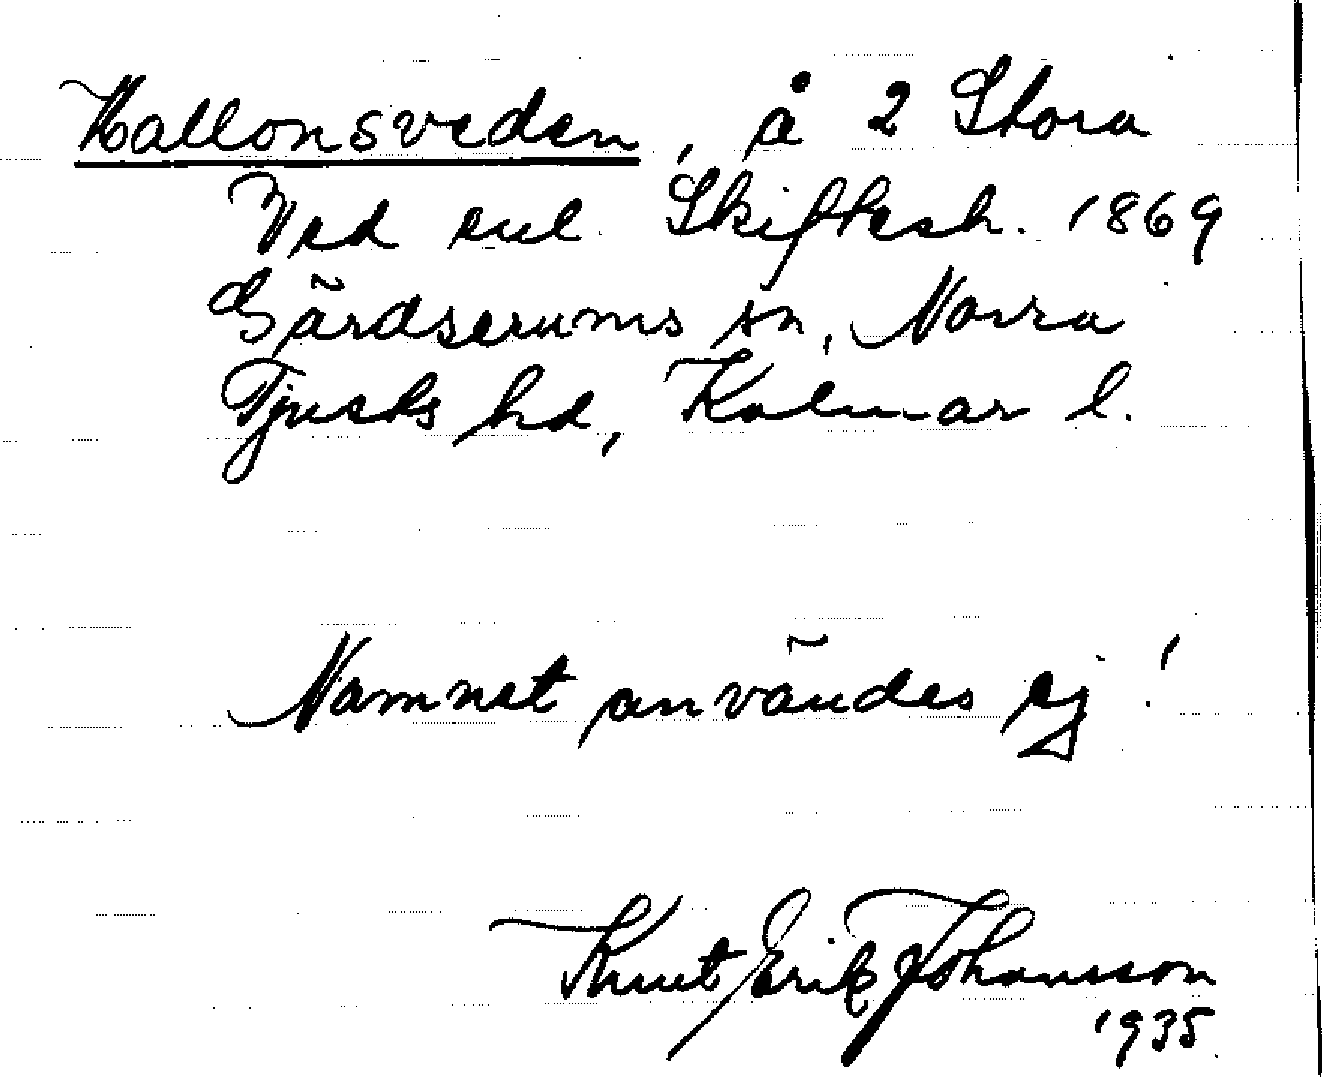 Hallonsveden, å 2 Stora
Ved enl. Skiftesh. 1869
Gärdserums sn, Norra
Tjusts hd, Kalmar l.
Namnet användes ej!
Knut Erik Johansson
1935